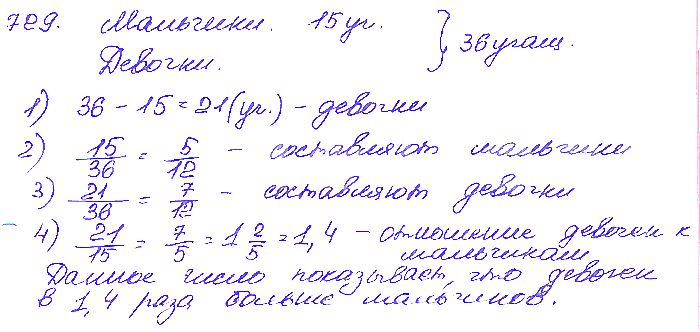 729. Мальчики. 15 уч. } 36 учащ.
Девочки.
1) 36 - 15 = 21 (уч.) - девочки
2) 15/36 = 5/12 - составляют мальчики
3) 21/36 = 7/12 - составляют девочки
4) 21/15 = 7/5 = 1 2/5 = 1,4 - отношение девочек к
мальчикам
Данное число показывает, что девочек
в 1,4 раза больше мальчиков.